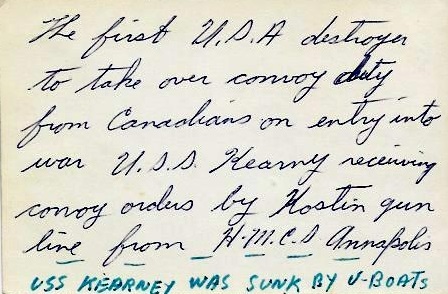 The first U.S.A destroyer
to take over convoy duty
from Canadians on entry into
war U.S.S. Kearny receiving
convoy orders by Kostin gun
line from H.M.C.S Annapolis
USS KEARNEY WAS SUNK BY U-BOATS